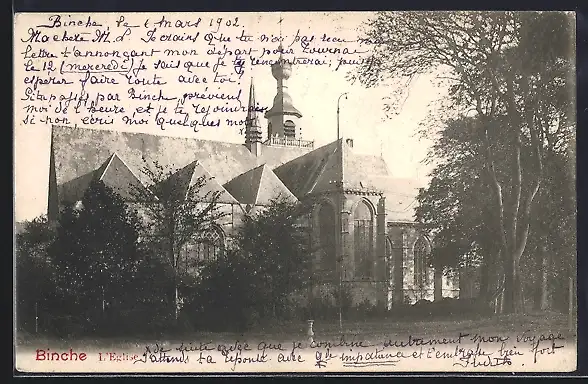 Binche, le 6 Mars 1902.
Ma chère M. L. Je crois que tu n'as pas reçu ma
lettre t'annonçant mon départ pour Tournai
le 12 (mercredi) Je sais que je te rencontrerai; puis-je
espérer faire route avec toi?
Si tu passes par Binche, préviens
moi de l'heure, et je te rejoindrai
si non, écris moi quelques mots
Binche L'Église
que je combine
mon voyage
J'attends ta réponse avec impatience et t'embrasse bien fort